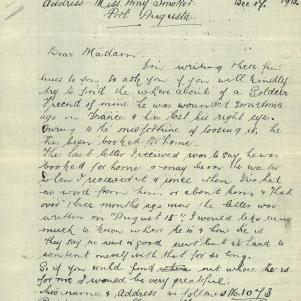 Address Miss Amy Smoker. Dec 17. 191
Port Augusta
Dear Madam.
I'm writing these few
lines to you to ask you if you will kindly
try to find the where abouts of a Soldier
friend of mine he was wounded sometime
ago in France & has lost his right eye.
Owing to the misfortune of loosing it, he
has been booked for home.
The last letter I received was to say he was
booked for home & may be on the water
when I received it & since then I've had
no word from him, or about him & That
over three months ago now the letter was
written on "August 15" I would like very
much to know where he is & how he is
They say no news is good news but it hard to
content myself with that for so long.
So if you would find out where he is
for me I would be very grateful.
his name & Address as follows